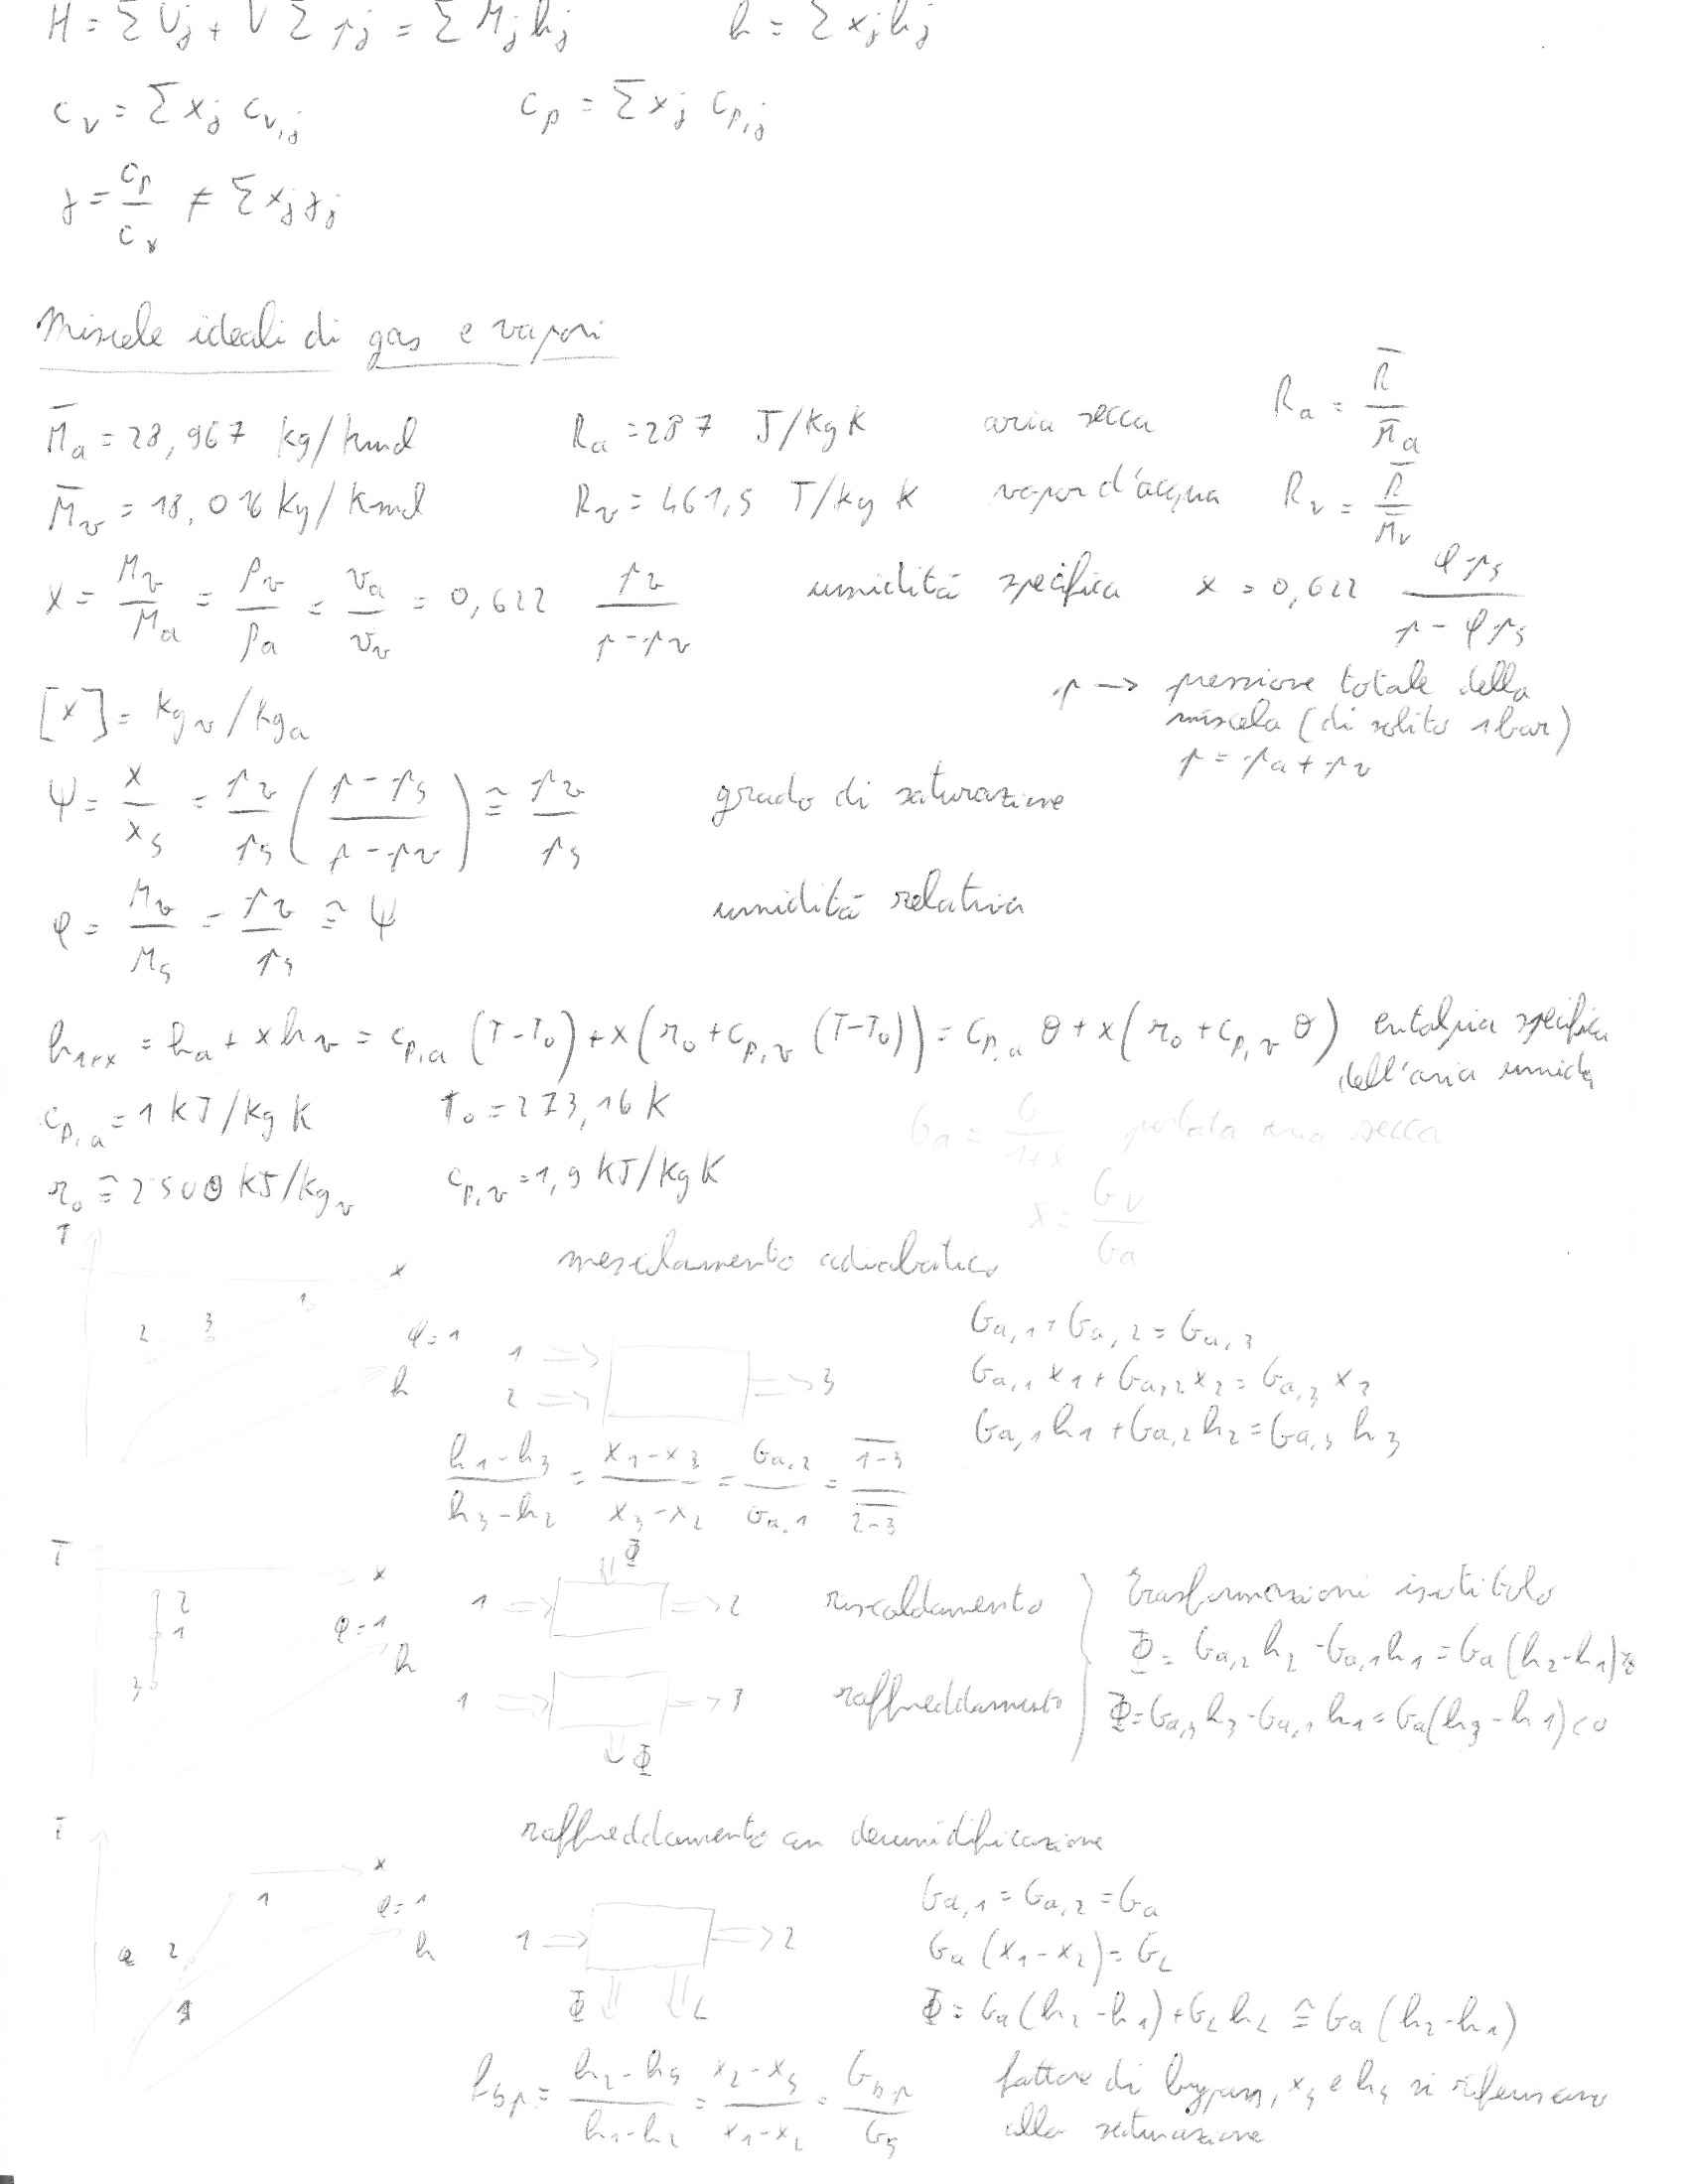 H = Σ Uj + V Σ pj = Σ Mj hj h = Σ xj hj
cv = Σ xj cv,j cp = Σ xj cp,j
γ = cp/cv ≠ Σ xj γj
Miscele ideali di gas e vapori
M̄a = 28,967 kg/kmol Ra = 287 J/kg K aria secca Ra = R̄/M̄a
M̄v = 18,016 kg/kmol Rv = 461,5 J/kg K vapor d'acqua Rv = R̄/M̄v
x = Mv/Ma = ρv/ρa = va/vv = 0,622 pv/(p-pv) umidità specifica x = 0,622 φps/(p-φps)
[x] = kgv/kga p → pressione totale della
miscela (di solito 1 bar)
p = pa + pv
ψ = x/xs = pv/ps ((p-ps)/(p-pv)) ≅ pv/ps grado di saturazione
φ = Mv/Ms = pv/ps ≅ ψ umidità relativa
h1+x = ha + x hv = cp,a (T-T0) + x(r0 + cp,v (T-T0)) = cp,a θ + x(r0 + cp,v θ) entalpia specifica
dell'aria umida
cp,a = 1 kJ/kg K T0 = 273,16 K
Ga = G/(1+x) portata aria secca
r0 ≅ 2500 kJ/kgv cp,v = 1,9 kJ/kg K
x = Gv/Ga
T x 1 2 3 φ=1 h
mescolamento adiabatico
1 2 3
Ga,1 + Ga,2 = Ga,3
Ga,1 x1 + Ga,2 x2 = Ga,3 x3
Ga,1 h1 + Ga,2 h2 = Ga,3 h3
(h1-h3)/(h3-h2) = (x1-x3)/(x3-x2) = Ga,2/Ga,1 = 1-3/2-3
T x 2 1 3 φ=1 h
Φ
1 2 riscaldamento trasformazioni isotitolo
Φ = Ga,2 h2 - Ga,1 h1 = Ga (h2-h1)
1 3 raffreddamento Φ = Ga,3 h3 - Ga,1 h1 = Ga (h3-h1) < 0
Φ
raffreddamento con deumidificazione
T x 1 φ=1 2 h
1 2
Φ L
Ga,1 = Ga,2 = Ga
Ga (x1-x2) = GL
Φ = Ga (h2-h1) + GL hL ≅ Ga (h2-h1)
fbp = (h2-hs)/(h1-h2) = (x2-xs)/(x1-x2) = Gbp/Gs fattore di bypass, xs e hs si riferiscono
alla saturazione